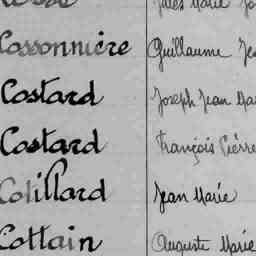 Jules Marie
Cossonnière Guillaume
Costard Joseph Jean
Costard François Pierre
Cotillard Jean Marie
Cottain Auguste Marie